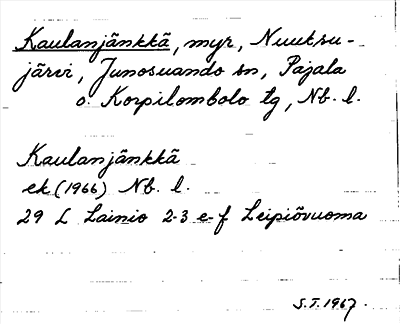 Kaulanjänkkä, myr, Nuuksu-
järvi, Junosuando sn, Pajala
o. Korpilombolo tg, Nb. l.
Kaulanjänkkä
ek (1966) Nb. l.
29 L Lainio 2-3 e-f Leipiövuoma
S.T. 1967.